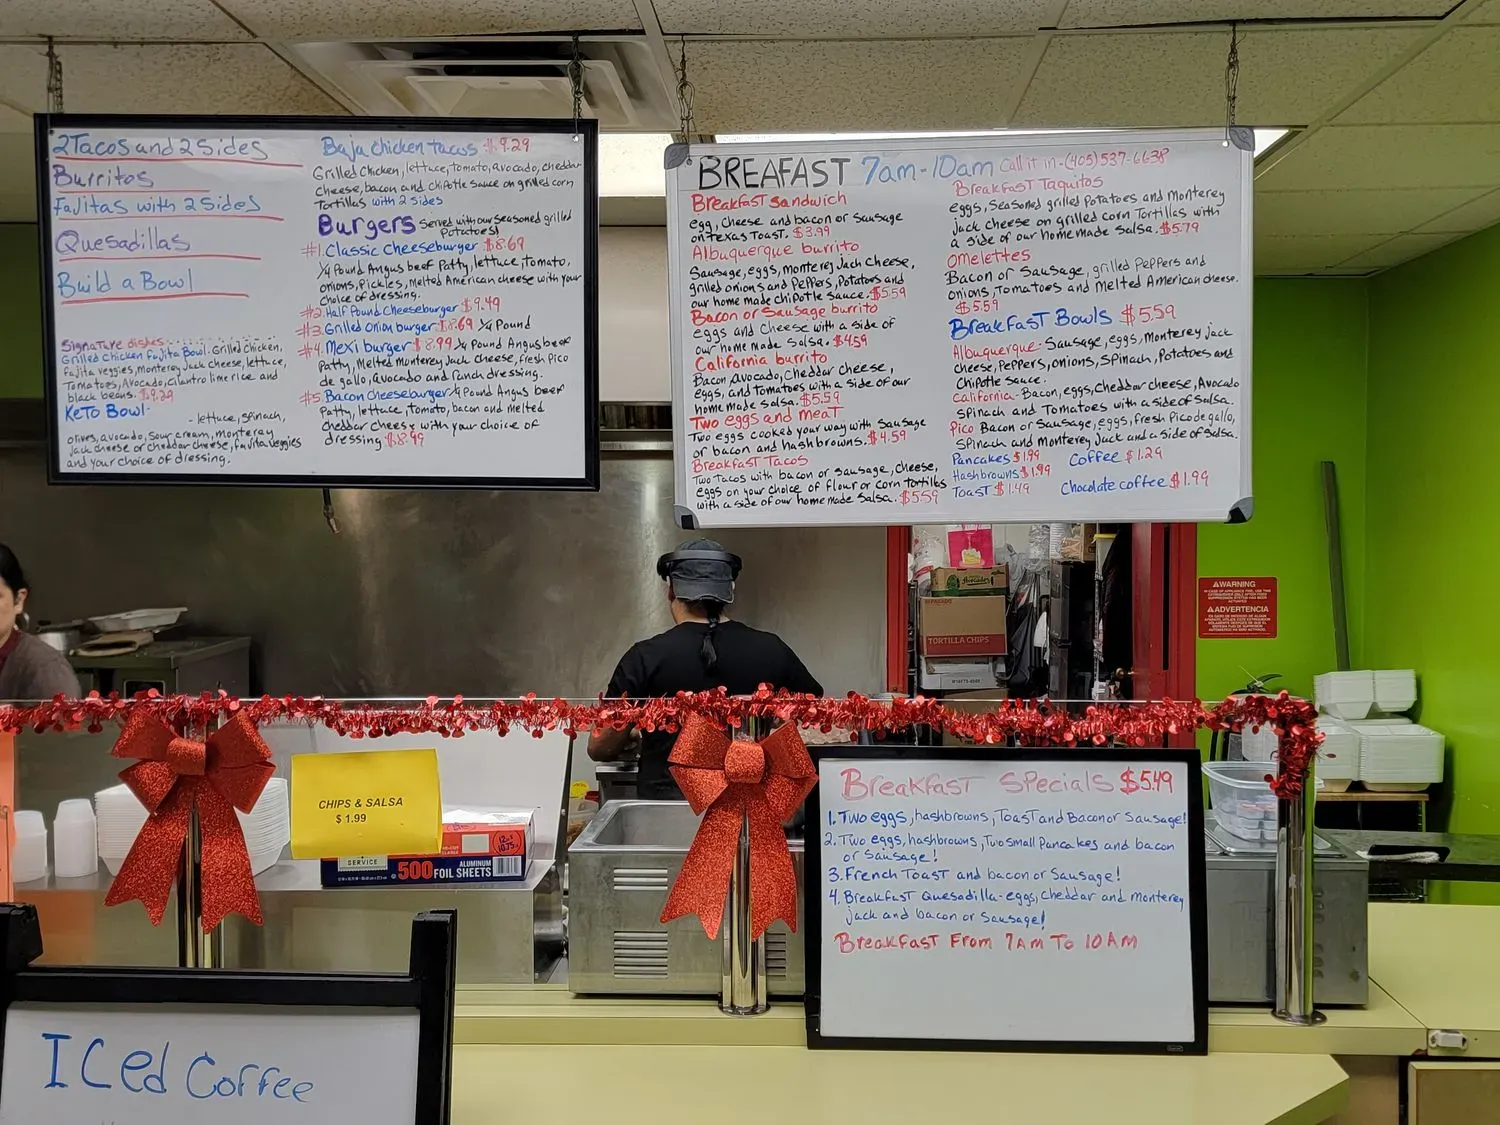 2 Tacos and 2 Sides
Burritos
Fajitas with 2 Sides
Quesadillas
Build a Bowl
Signature dishes
Grilled Chicken Fajita Bowl - Grilled Chicken,
Fajita veggies, monterey Jack cheese, lettuce,
Tomatoes, Avocado, Cilantro lime rice and
black beans. $9.29
Keto Bowl -
- lettuce, spinach,
olives, avocado, sour cream, monterey
jack cheese or cheddar cheese, fajita veggies
and your choice of dressing.
Baja chicken tacos $9.29
Grilled chicken, lettuce, tomato, avocado, cheddar
cheese, bacon and chipotle sauce on grilled corn
Tortillas with 2 sides
Burgers Served with our seasoned grilled
Potatoes!
#1. Classic Cheeseburger $8.69
1/4 Pound Angus beef Patty, lettuce, tomato,
onions, Pickles, Melted American cheese with your
choice of dressing.
#2. Half Pound Cheeseburger $9.49
#3. Grilled Onion burger $8.69 1/4 Pound
#4. Mexi burger $8.99 1/4 Pound Angus beef
Patty, Melted Monterey Jack Cheese, fresh Pico
de gallo, avocado and ranch dressing.
#5. Bacon Cheeseburger 1/4 Pound Angus beef
Patty, lettuce, tomato, bacon and melted
cheddar cheese with your choice of
dressing $8.99
BREAFAST 7am-10am Call it in - (405) 537-6638
Breakfast Sandwich
egg, Cheese and bacon or Sausage
on Texas Toast. $3.99
Albuquerque burrito
Sausage, eggs, monterey Jack Cheese,
grilled onions and Peppers, Potatoes and
our home made chipotle sauce. $5.59
Bacon or Sausage burrito
eggs and Cheese with a side of
our home made Salsa. $4.59
California burrito
Bacon, Avocado, Cheddar cheese,
eggs, and tomatoes with a side of our
home made Salsa. $5.59
Two eggs and meat
Two eggs cooked your way with Sausage
or bacon and hashbrowns. $4.59
Breakfast Tacos
Two Tacos with bacon or sausage, cheese,
eggs on your choice of flour or corn tortillas
with a side of our homemade Salsa. $5.59
Breakfast Taquitos
eggs, Seasoned grilled Potatoes and Monterey
Jack cheese on grilled corn Tortillas with
a side of our homemade Salsa. $5.79
Omelettes
Bacon or Sausage, grilled Peppers and
onions, Tomatoes and Melted American cheese.
$5.59
Breakfast Bowls $5.59
Albuquerque - Sausage, eggs, monterey jack
cheese, Peppers, onions, spinach, Potatoes and
Chipotle Sauce.
California - Bacon, eggs, Cheddar cheese, Avocado
spinach and Tomatoes with a side of Salsa.
Pico Bacon or Sausage, eggs, fresh Pico de gallo,
spinach and monterey Jack and a side of Salsa.
Pancakes $1.99 Coffee $1.29
Hashbrowns $1.99
Toast $1.49 Chocolate coffee $1.99
Avocados
TORTILLA CHIPS
WARNING
ADVERTENCIA
CHIPS & SALSA
$ 1.99
SERVICE
500 ALUMINUM
FOIL SHEETS
Breakfast Specials $5.49
1. Two eggs, hashbrowns, Toast and Bacon or Sausage!
2. Two eggs, hashbrowns, Two small Pancakes and bacon
or Sausage!
3. French Toast and bacon or Sausage!
4. Breakfast Quesadilla - eggs, Cheddar and monterey
jack and bacon or Sausage!
Breakfast From 7AM To 10AM
Iced Coffee